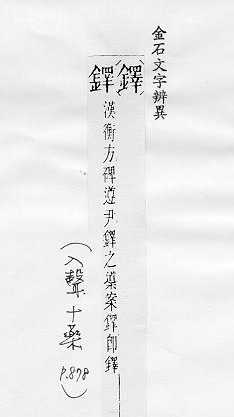 金石文字辨異
鐸
鐸 漢衡方碑遵尹鐸之 案鐸即鐸
(入聲十藥 P.878)